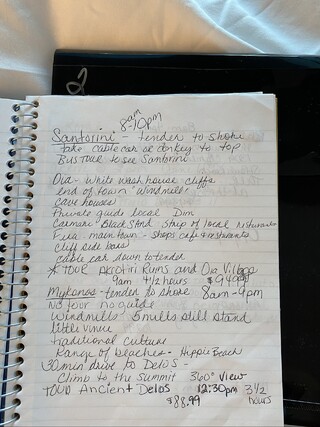 2
8am-10pm
Santorini - tender to shore
take cable car or donkey to top
Bus tour to see Santorini
Oia - White wash house cliffs
end of town "windmill"
cave houses
Private guide local Dim
Camari - Black Sand strip of local restaurants
Fira main town - shops cafe & restaurants
Cliff side bars
cable car down to tender
* TOUR Akrotiri Ruins and Oia Village
9am 4 1/2 hours $94.99
Mykonos - tender to shore 8am-4pm
No tour no guide
Windmills 5 mills still stand
little venice
traditional culture
Range of beaches - Hippie Beach
30 min drive to Delos -
Climb to the Summit 360° View
TOUR Ancient Delos 12:30pm 3 1/2
$88.99 hours